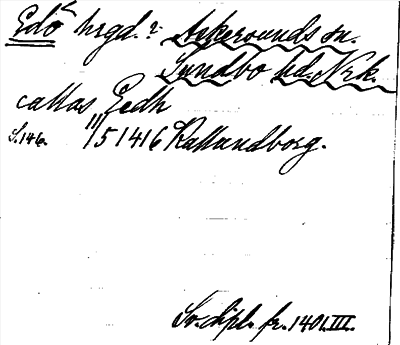 Edö hrgd.? Askersunds sn.
Sundbo hd. Nrk.
callas Eedh
S.146. 11/5 1416 Kallundborg.
Sv. dipl. fr. 1401. III.